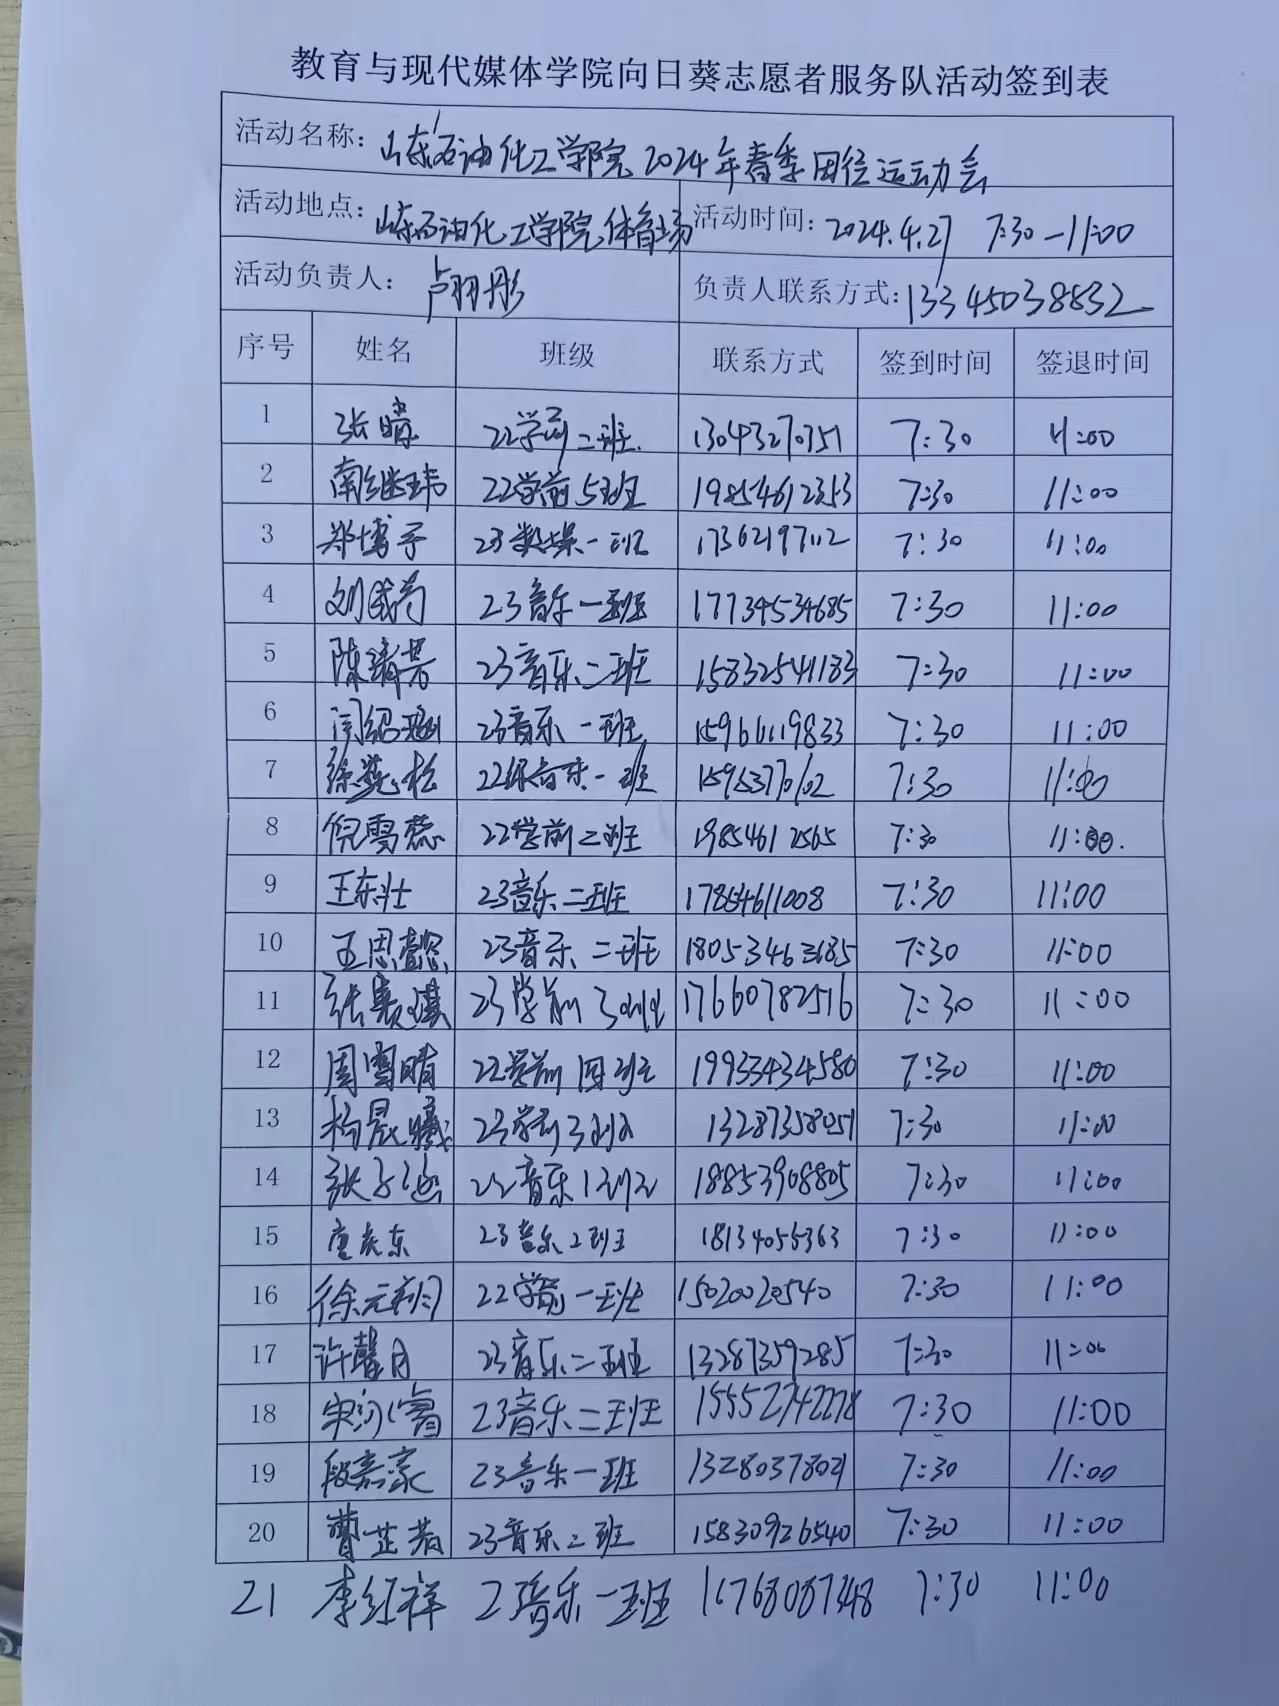 教育与现代媒体学院向日葵志愿者服务队活动签到表
活动名称: 山东石油化工学院2024年春季田径运动会
活动地点: 山东石油化工学院体育场 活动时间: 2024.4.27 7:30-11:00
活动负责人: 卢羽彤 负责人联系方式: 13345038832
序号 姓名 班级 联系方式 签到时间 签退时间
1 张晴 22学前二班. 13043270351 7:30 11:00
2 南继玮 22学前5班 19854612353 7:30 11:00
3 郑博予 23数媒一班 17362197112 7:30 11:00
4 23音乐一班 17734534685 7:30 11:00
5 陈靖若 23音乐二班 15832541183 7:30 11:00
6 闫绍 23音乐一班 15966119833 7:30 11:00
7 徐 松 一班 7:30 11:00
8 倪雪蕊 22学前二班 19854612565 7:30 11:00.
9 王东壮 23音乐二班 17854611008 7:30 11:00
10 王思懿 23音乐二班 18053463685 7:30 11:00
11 张 23学前3班 17660782516 7:30 11:00
12 周雪晴 22学前四班 19933434580 7:30 11:00
13 杨晟曦 23学前3班 13287358051 7:30 11:00
14 张子 22音乐1班 18853908805 7:30 11:00
15 东 23音乐2班 18134055363 7:30 11:00
16 徐元 22学前一班 15020020540 7:30 11:00
17 许馨月 23音乐二班 13287359285 7:30 11:00
18 宋 睿 23音乐二班 15552742278 7:30 11:00
19 段嘉豪 23音乐一班 13280378021 7:30 11:00
20 曹芷若 23音乐二班 15830926540 7:30 11:00
21 李红祥 23音乐一班 16768087348 7:30 11:00